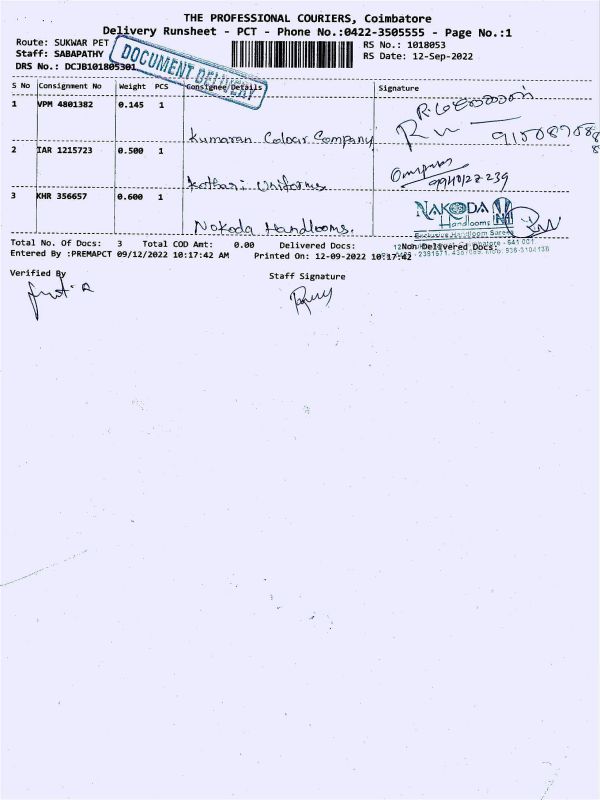 THE PROFESSIONAL COURIERS, Coimbatore
Delivery Runsheet - PCT - Phone No.:0422-3505555 - Page No.:1
Route: SUKWAR PET
RS No.: 1018053
Staff: SABAPATHY
RS Date: 12-Sep-2022
DRS No.: DCJB101805301
DOCUMENT DELIVERY
S No Consignment No Weight PCS Consignee Details Signature
1 VPM 4801382 0.145 1 Kumaran Colour Company
2 IAR 1215723 0.500 1 Kothari Uniforms
9940122239
3 KHR 356657 0.600 1 Nakoda Handlooms.
NAKODA
Handlooms
Exclusive Handloom
Total No. Of Docs: 3 Total COD Amt: 0.00 Delivered Docs: Non Delivered Docs:
Entered By :PREMAPCT 09/12/2022 10:17:42 AM Printed On: 12-09-2022 10:17:42
Verified By
Staff Signature